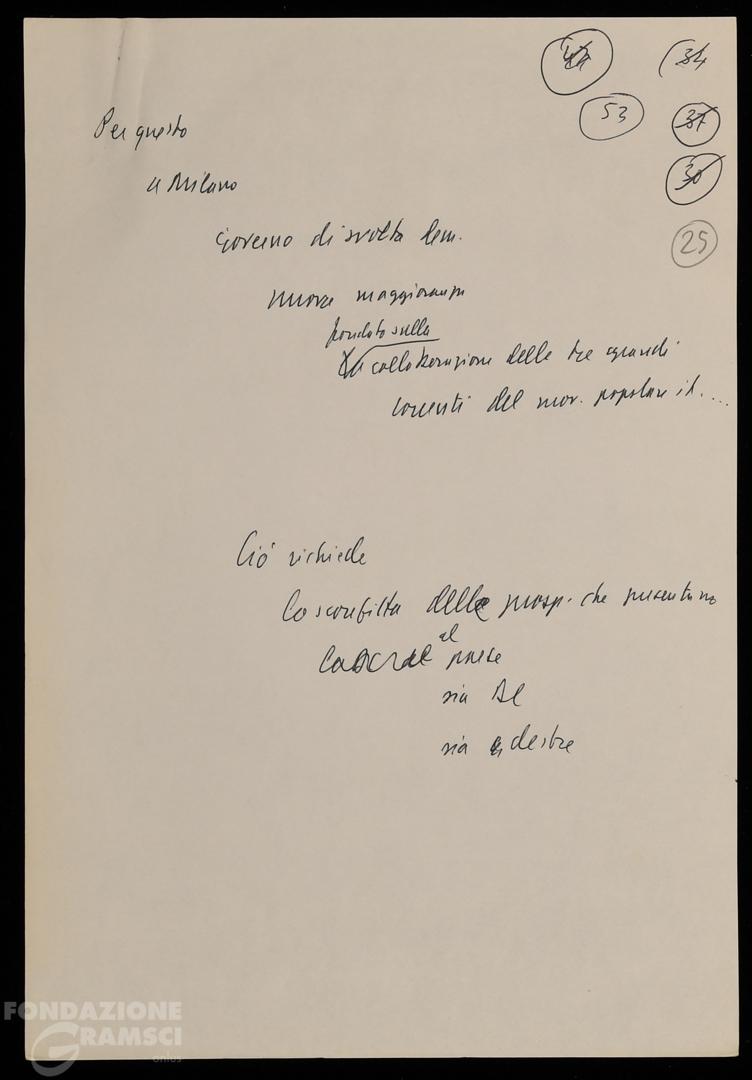 34
53
37
30
25
Per questo
a Milano
Governo di svolta dem.
nuova maggioranza
fondato sulla
collaborazione delle tre grandi
correnti del mov. popolare it. ...
Ciò richiede
la sconfitta delle prosp. che presentano
al
la DC al paese
sia
sia destre
FONDAZIONE
GRAMSCI
onlus